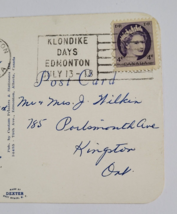 KLONDIKE
DAYS
EDMONTON
JULY 13-18
4¢
Post Card
Mr & Mrs. J. Wilkin
785 Portsmouth Ave
Kingston
Ont.
DEXTER